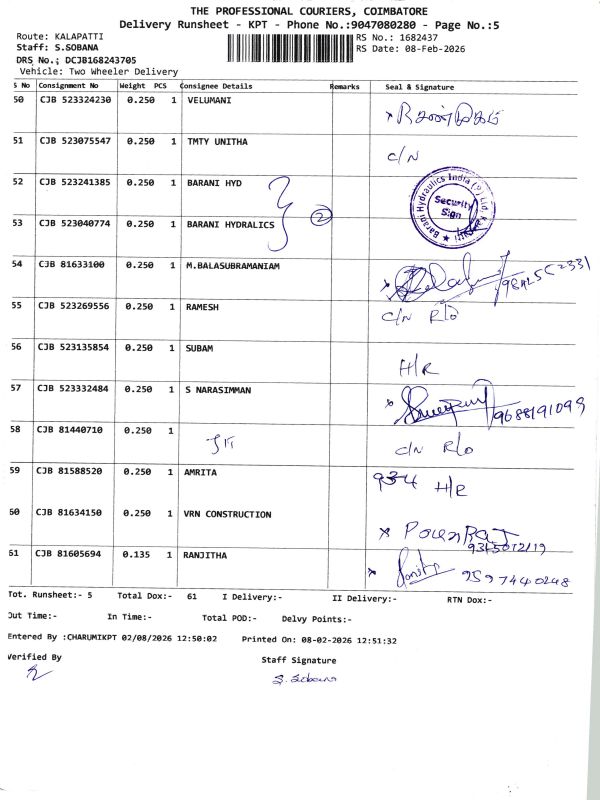 THE PROFESSIONAL COURIERS, COIMBATORE
Delivery Runsheet - KPT - Phone No.:9047080280 - Page No.:5
Route: KALAPATTI
RS No.: 1682437
Staff: S.SOBANA
RS Date: 08-Feb-2026
DRS No.; DCJB168243705
Vehicle: Two Wheeler Delivery
S No Consignment No Weight PCS Consignee Details Remarks Seal & Signature
50 CJB 523324230 0.250 1 VELUMANI
51 CJB 523075547 0.250 1 TMTY UNITHA C/N
52 CJB 523241385 0.250 1 BARANI HYD
Barani Hydraulics India (P) Ltd.
Security
Sign
2
53 CJB 523040774 0.250 1 BARANI HYDRALICS
54 CJB 81633100 0.250 1 M.BALASUBRAMANIAM
55 CJB 523269556 0.250 1 RAMESH C/N R/O
56 CJB 523135854 0.250 1 SUBAM H/R
57 CJB 523332484 0.250 1 S NARASIMMAN 9688191099
58 CJB 81440710 0.250 1 C/N R/O
59 CJB 81588520 0.250 1 AMRITA 934 H/R
60 CJB 81634150 0.250 1 VRN CONSTRUCTION
61 CJB 81605694 0.135 1 RANJITHA 9597440248
Tot. Runsheet:- 5 Total Dox:- 61 I Delivery:- II Delivery:- RTN Dox:-
Out Time:- In Time:- Total POD:- Delvy Points:-
Entered By :CHARUMIKPT 02/08/2026 12:50:02 Printed On: 08-02-2026 12:51:32
Verified By Staff Signature
S. Sobana